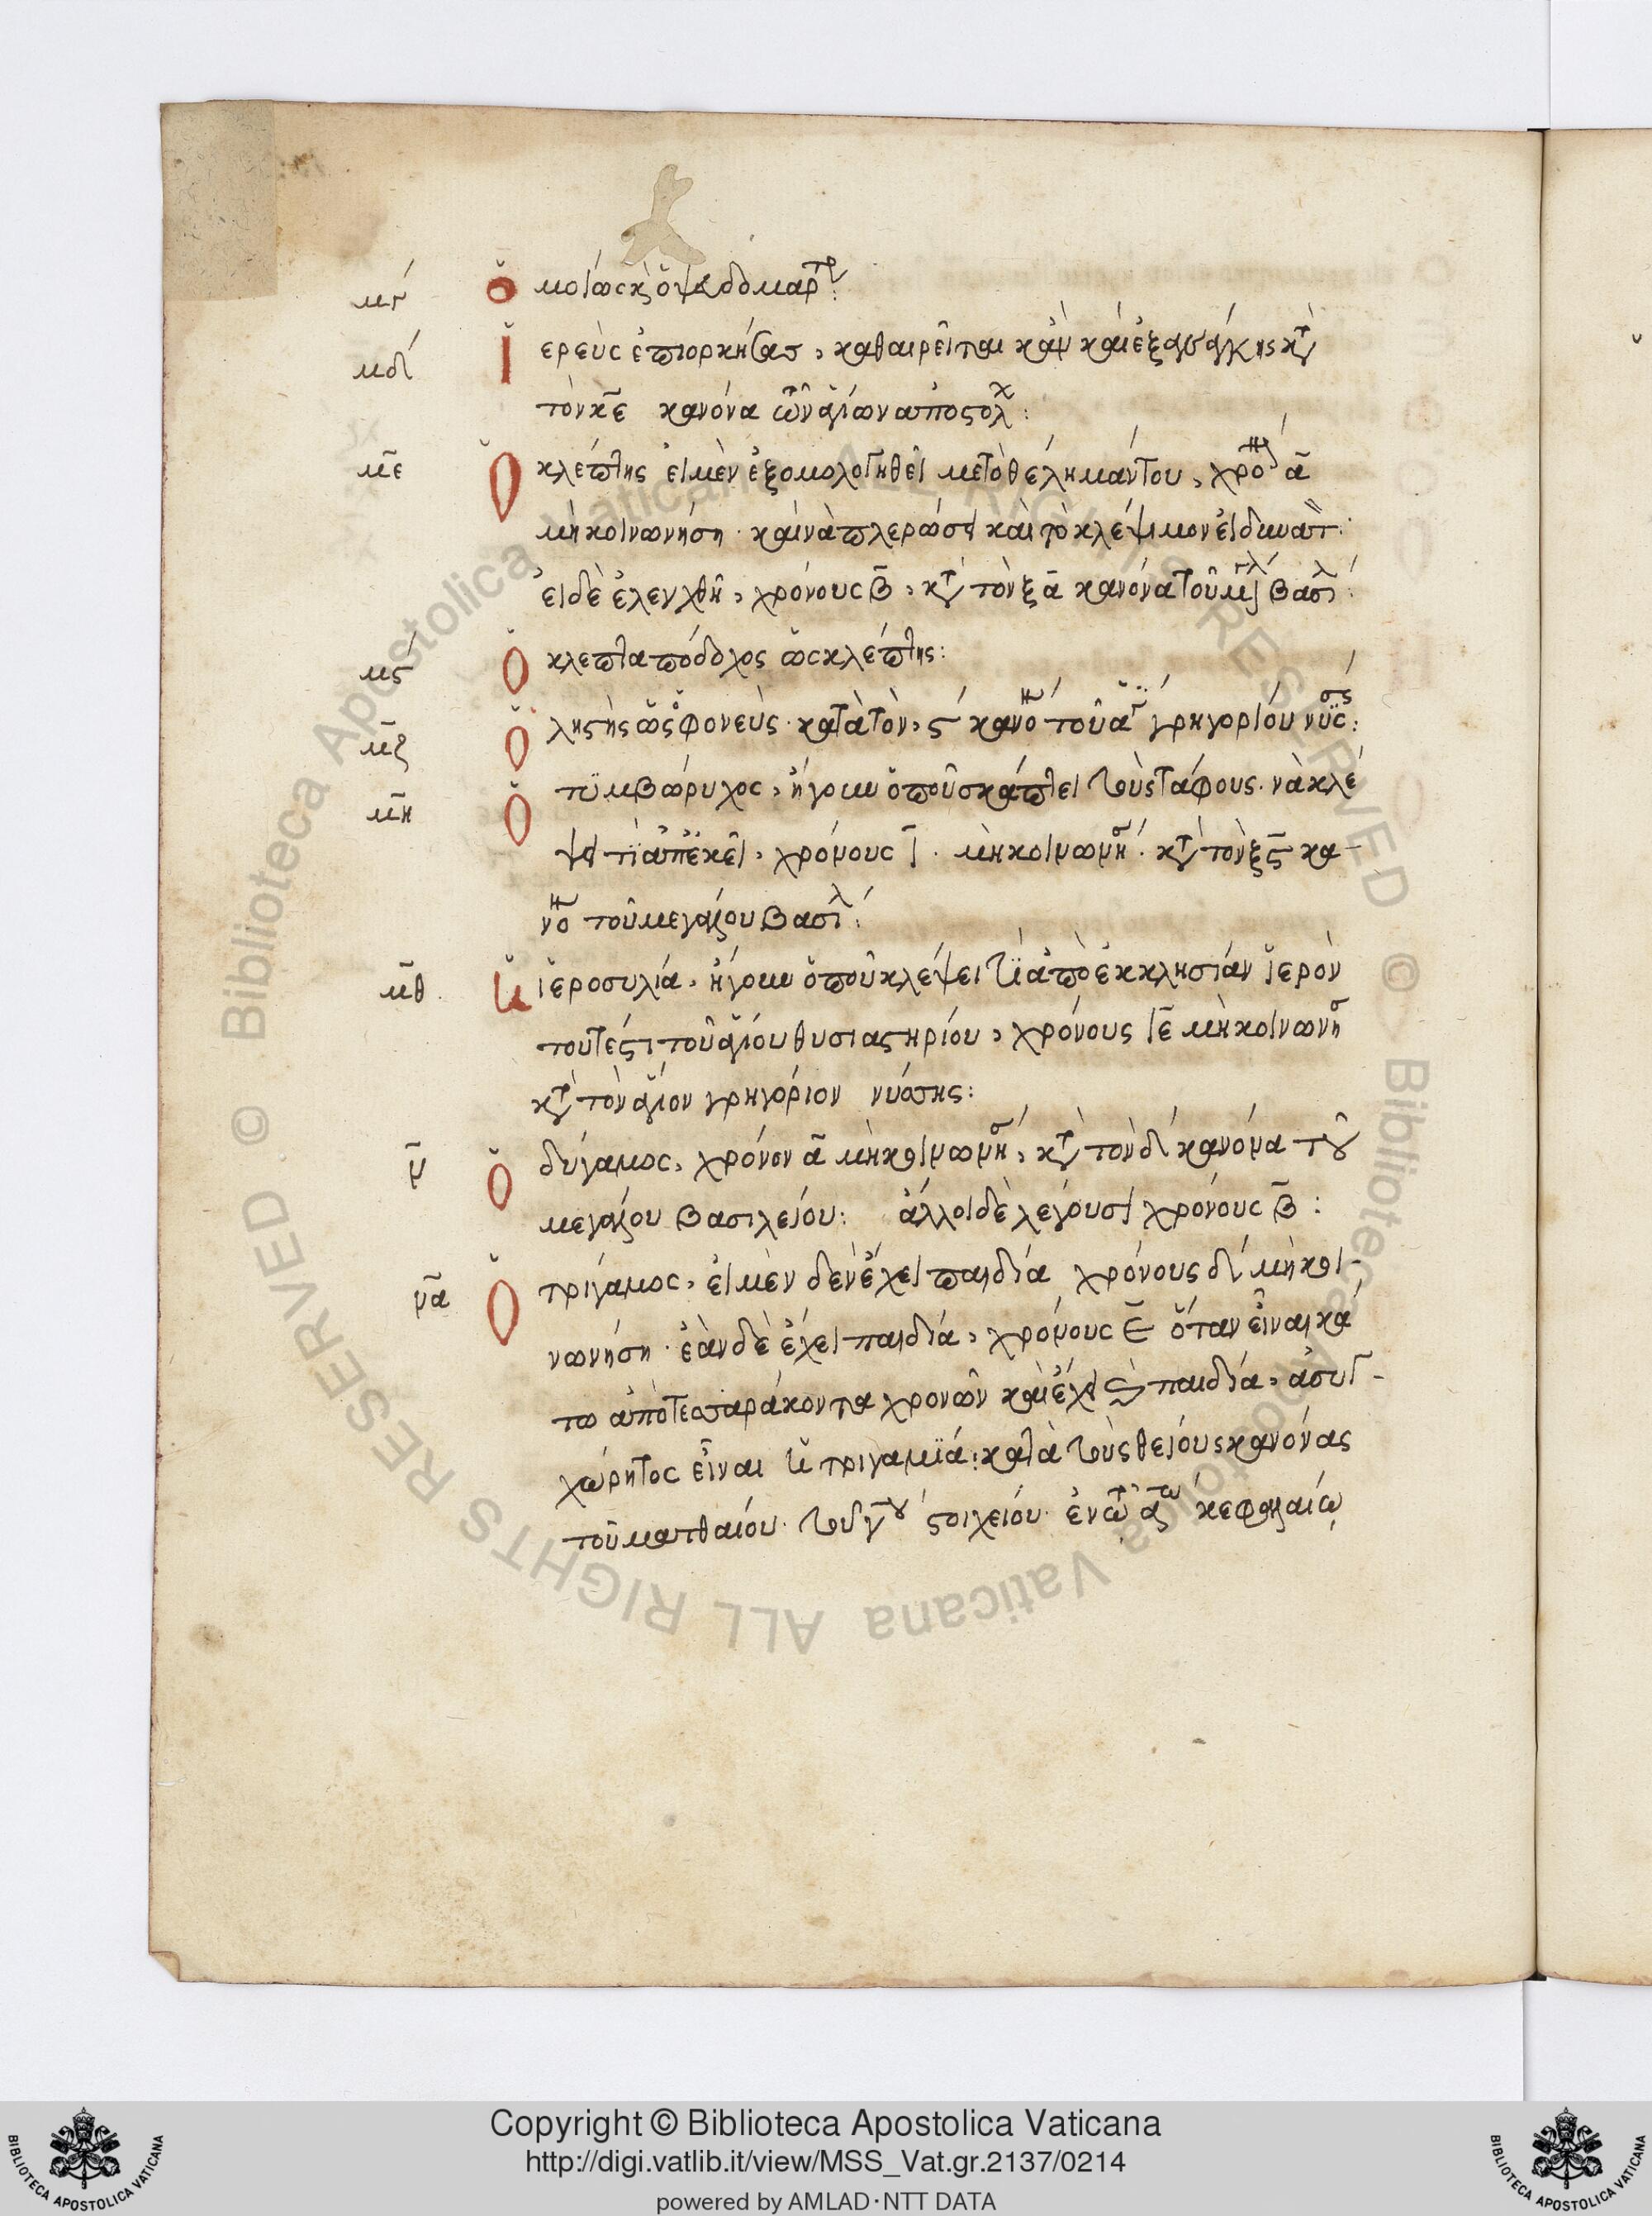 μγ́ ὁμοίως κ̀ ὁ ψευδομάρτυ:
μδ́ ἱερεὺς ἐπιορκήσας, καθαιρεῖται κἀν καὶ ἐξ ἀνάγκης κτ̀
τὸν κ̄ε κανόνα τῶν ἁγίων ἀποστόλ:
μ̄ε ὁ κλέπτης εἰ μὲν ἐξομολογηθεῖ με τὸ θέλημάν του, χρό ᾱ
μὴ κοινωνήση. καὶ νὰ πλερώση καὶ τὸ κλέψιμον εἰ δυνατ:
εἰ δὲ ἐλενχθῆ, χρόνους β̄, κτ̀ τὸν ξᾱ κανόνα τοῦ μεγάλ Βασιλ:
μς́ ὁ κλεπταπόδοχος ὡς κλέπτης:
μ̄ζ ὁ ληστὴς ὡς ὁ φονεὺς. κατὰ τὸν, ς́ κανό τοῦ ἁγ γρηγορίου νύσης:
μ̄η ὁ τϋμβώρυχος, ἤγουν ὁποῦ σκάπτει τοὺς τάφους. νὰ κλέ
ψη τὶ ἀπ' ἐκεῖ, χρόνους ῑ. μὴ κοινωνήση. κτ̀ τὸν ξ̄ς κα-
νό τοῦ μεγάλου Βασιλ:
μ̄θ. ἡ ἱεροσυλία, ἤγουν ὁποῦ κλέψει τὶ ἀπὸ ἐκκλησίαν ἱερὸν
τουτέστι τοῦ ἁγίου θυσιαστηρίου, χρόνους ιε̄ μὴ κοινωνήση
κτ̀ τὸν ἅγιον γρηγόριον νύσσης:
ν̄ ὁ δύγαμος, χρόνον ᾱ μὴ κοινωνήση, κτ̀ τὸν δ́ κανόνα τοῦ
μεγάλου Βασιλείου: ἄλλοι δὲ λέγουσι χρόνους β̄:
ν̄α ὁ τρίγαμος, εἰ μὲν δὲν ἔχει παιδία χρόνους δ́ μὴ κοι-
νωνήση. ἐὰν δὲ ἔχει παιδία, χρόνους ε̄ ὅταν εἶναι κά
τω ἀπὸ τεσσαράκοντα χρονῶν καὶ ἔχη παιδία, ἀσυγ-
χώρητος εἶναι ἡ τριγαμϊά: κατὰ τοὺς θείους κανόνας
τοῦ ματθαίου. τοῦ γ̄ου στοιχείου. ἐν τῶ ᾱτω κεφαλαίω
Copyright © Biblioteca Apostolica Vaticana
http://digi.vatlib.it/view/MSS_Vat.gr.2137/0214
powered by AMLAD·NTT DATA